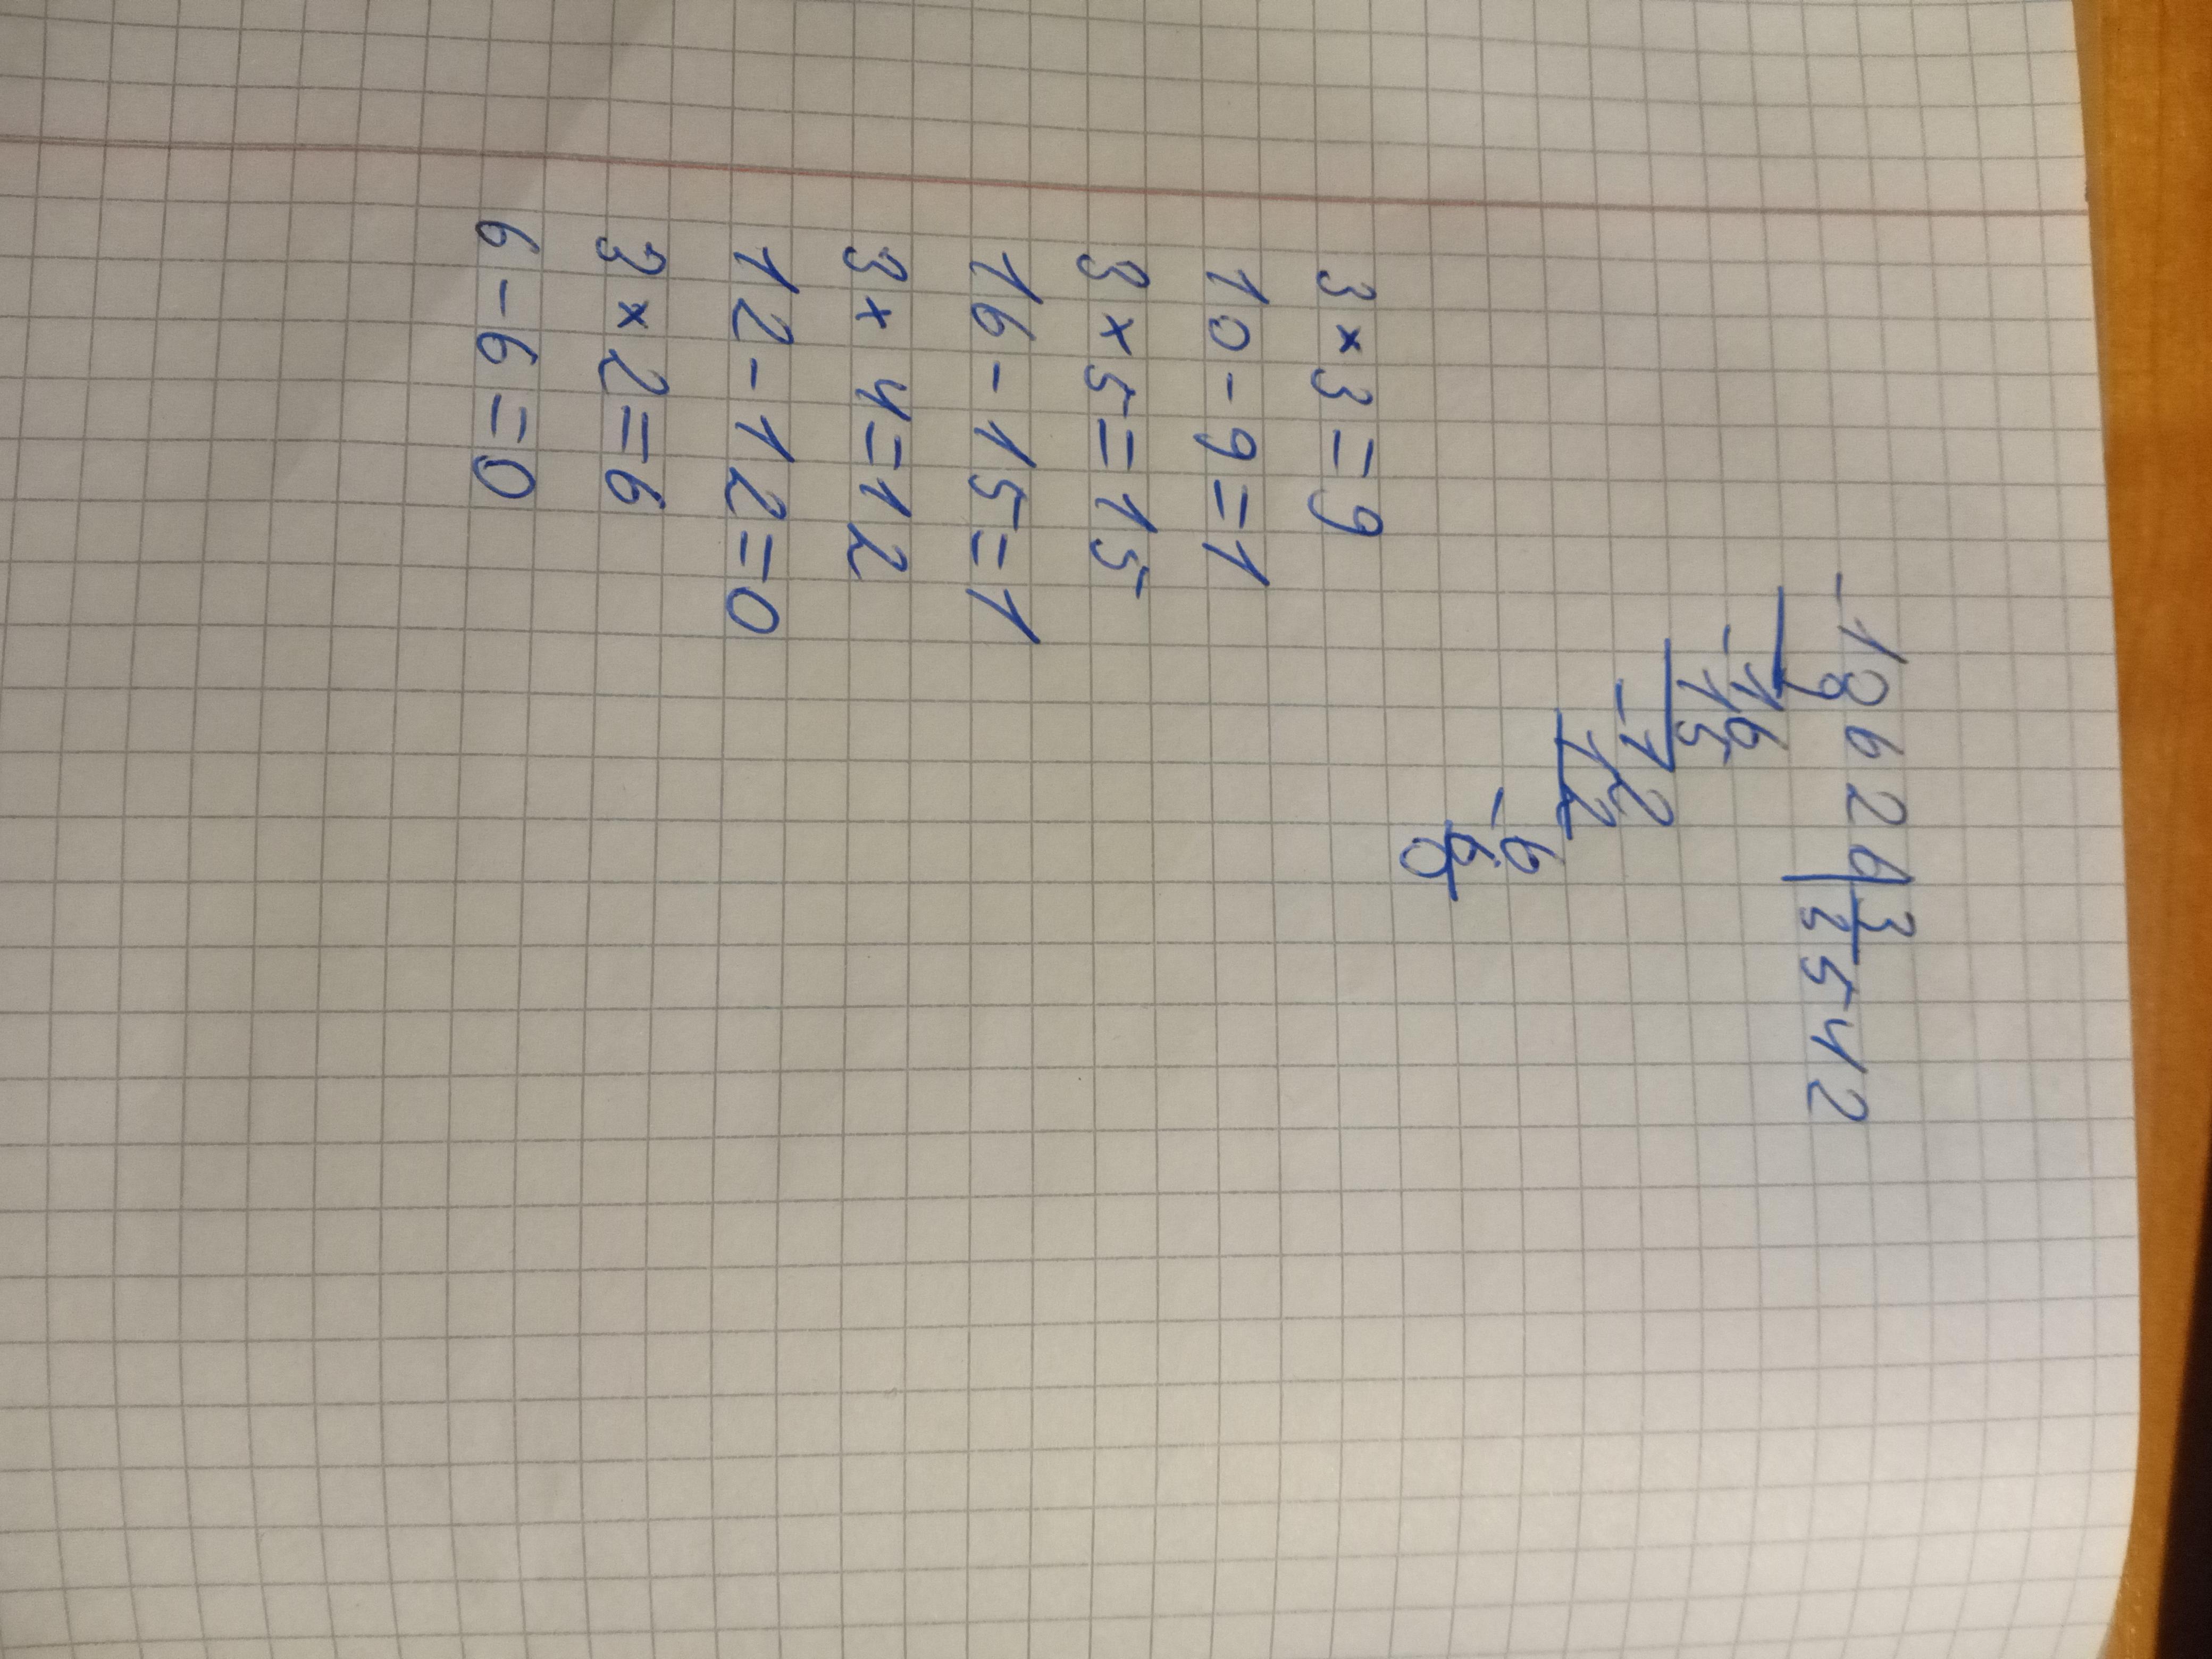 -10626 3
9 3542
-16
15
-12
12
-6
6
0
3×3=9
10-9=1
3×5=15
16-15=1
3×4=12
12-12=0
3×2=6
6-6=0